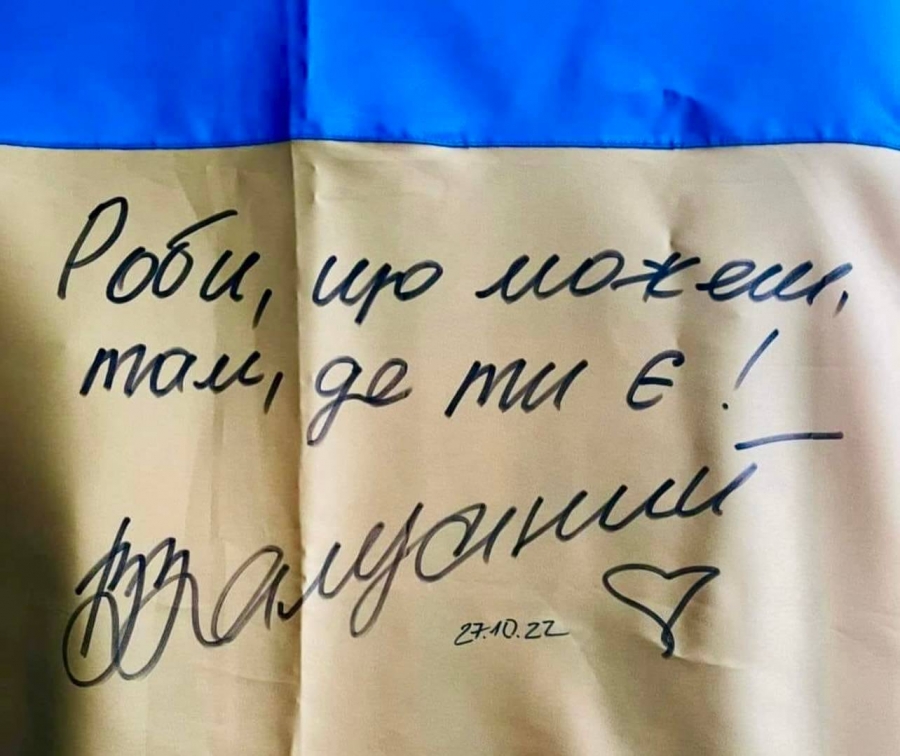 Роби, що можеш,
там, де ти є!
ВЗалужний
27.10.22